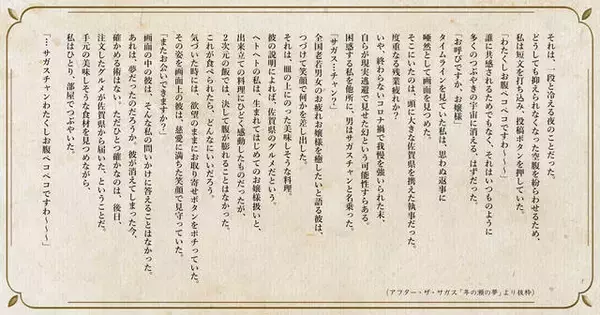 それは、一段と冷える夜のことだった。
どうしても抑えられなくなった空腹を紛らわせるため、
私は短文を打ち込み、投稿ボタンを押していた。
「わたくしお腹ペコペコですわ〜〜〜」
誰に共感されるためでもなく、それはいつものように
多くのつぶやきの宇宙に消える、はずだった。
「お呼びですか、お嬢様」
タイムラインを見ていた私は、思わぬ返事に
唖然として画面を見つめた。
そこにいたのは、頭に大きな佐賀県を携えた執事だった。
度重なる残業疲れか？
いや、終わらないコロナ禍で我慢を強いられた末、
自らが現実逃避で見せた幻という可能性すらある。
困惑する私を他所に、男はサガスチャンと名乗った。
「サガス…チャン？」
全国老若男女のお疲れお嬢様を癒したいと語る彼は、
つづけて笑顔で何かを差し出した。
それは、皿の上にのった美味しそうな料理。
彼の説明によれば、佐賀県のグルメだという。
ヘトヘトの私は、生まれてはじめてのお嬢様扱いと、
出来立ての料理にひどく感動したものだったが、
2次元の飯では、決して腹が膨れることはなかった。
これが食べられたら、どんなにいいだろう。
気づいた時には、欲望のままにお取り寄せボタンをポチっていた。
その姿を画面上の彼は、慈愛に満ちた笑顔で見守っていた。
「またお会いできますか？」
画面の中の彼は、そんな私の問いかけに答えることはなかった。
あれは、夢だったのだろうか。彼が消えてしまった今、
確かめる術はない。ただひとつ確かなのは、後日、
注文したグルメが佐賀県から届いた、ということだ。
手元の美味しそうな食材を見つめながら、
私はひとり、部屋でつぶやいた。
「…サガスチャンわたくしお腹ペコペコですわ〜〜〜」
（アフター・ザ・サガス「冬の瀬の夢」より抜粋）